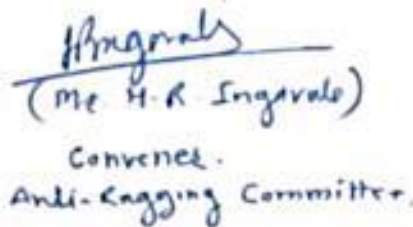 (Mr. H.R. Ingavale)
Convener.
Anti-Ragging Committee.